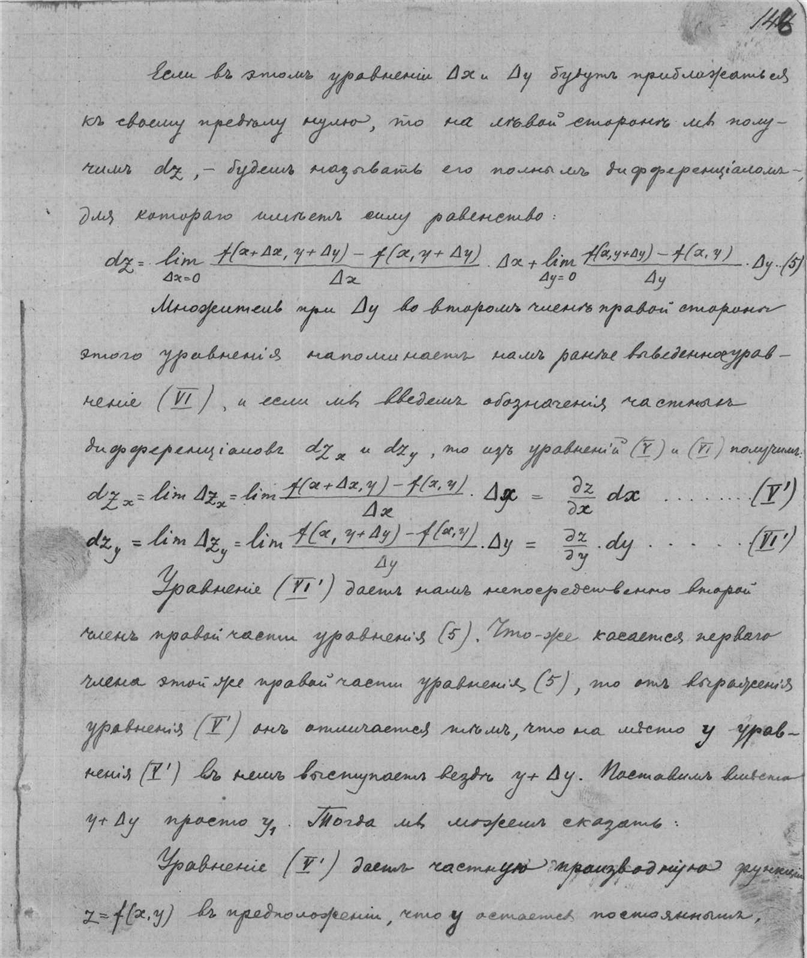 146
Если въ этомъ уравненіи Δx и Δy будутъ приближаться
къ своему предѣлу нулю, то на лѣвой сторонѣ мы полу-
чимъ dz, – будемъ называть его полнымъ дифференціаломъ –,
для котораго имѣетъ силу равенство:
dz = lim_{Δx=0} (f(x+Δx, y+Δy) – f(x, y+Δy))/Δx · Δx + lim_{Δy=0} (f(x, y+Δy) – f(x, y))/Δy · Δy · (5)
Множитель при Δy во второмъ членѣ правой стороны
этого уравненія напоминаетъ намъ ранѣе выведенное урав-
неніе (VI), и если мы введемъ обозначенія частныхъ
дифференціаловъ dz_x и dz_y, то изъ уравненій (V) и (VI) получимъ:
dz_x = lim Δz_x = lim (f(x+Δx, y) – f(x, y))/Δx · Δx = ∂z/∂x dx . . . . . . . . (V')
dz_y = lim Δz_y = lim (f(x, y+Δy) – f(x, y))/Δy · Δy = ∂z/∂y · dy . . . . . . (VI')
Уравненіе (VI') даетъ намъ непосредственно второй
членъ правой части уравненія (5). Что-же касается перваго
члена этой же правой части уравненія (5), то отъ выраженія
уравненія (V') онъ отличается тѣмъ, что на мѣсто y урав-
ненія (V') въ немъ выступаетъ вездѣ y + Δy. Поставимъ вмѣсто
y + Δy просто y₁. Тогда мы можемъ сказать:
Уравненіе (V') даетъ частную производную функціи
z = f(x, y) въ предположеніи, что y остается постояннымъ,